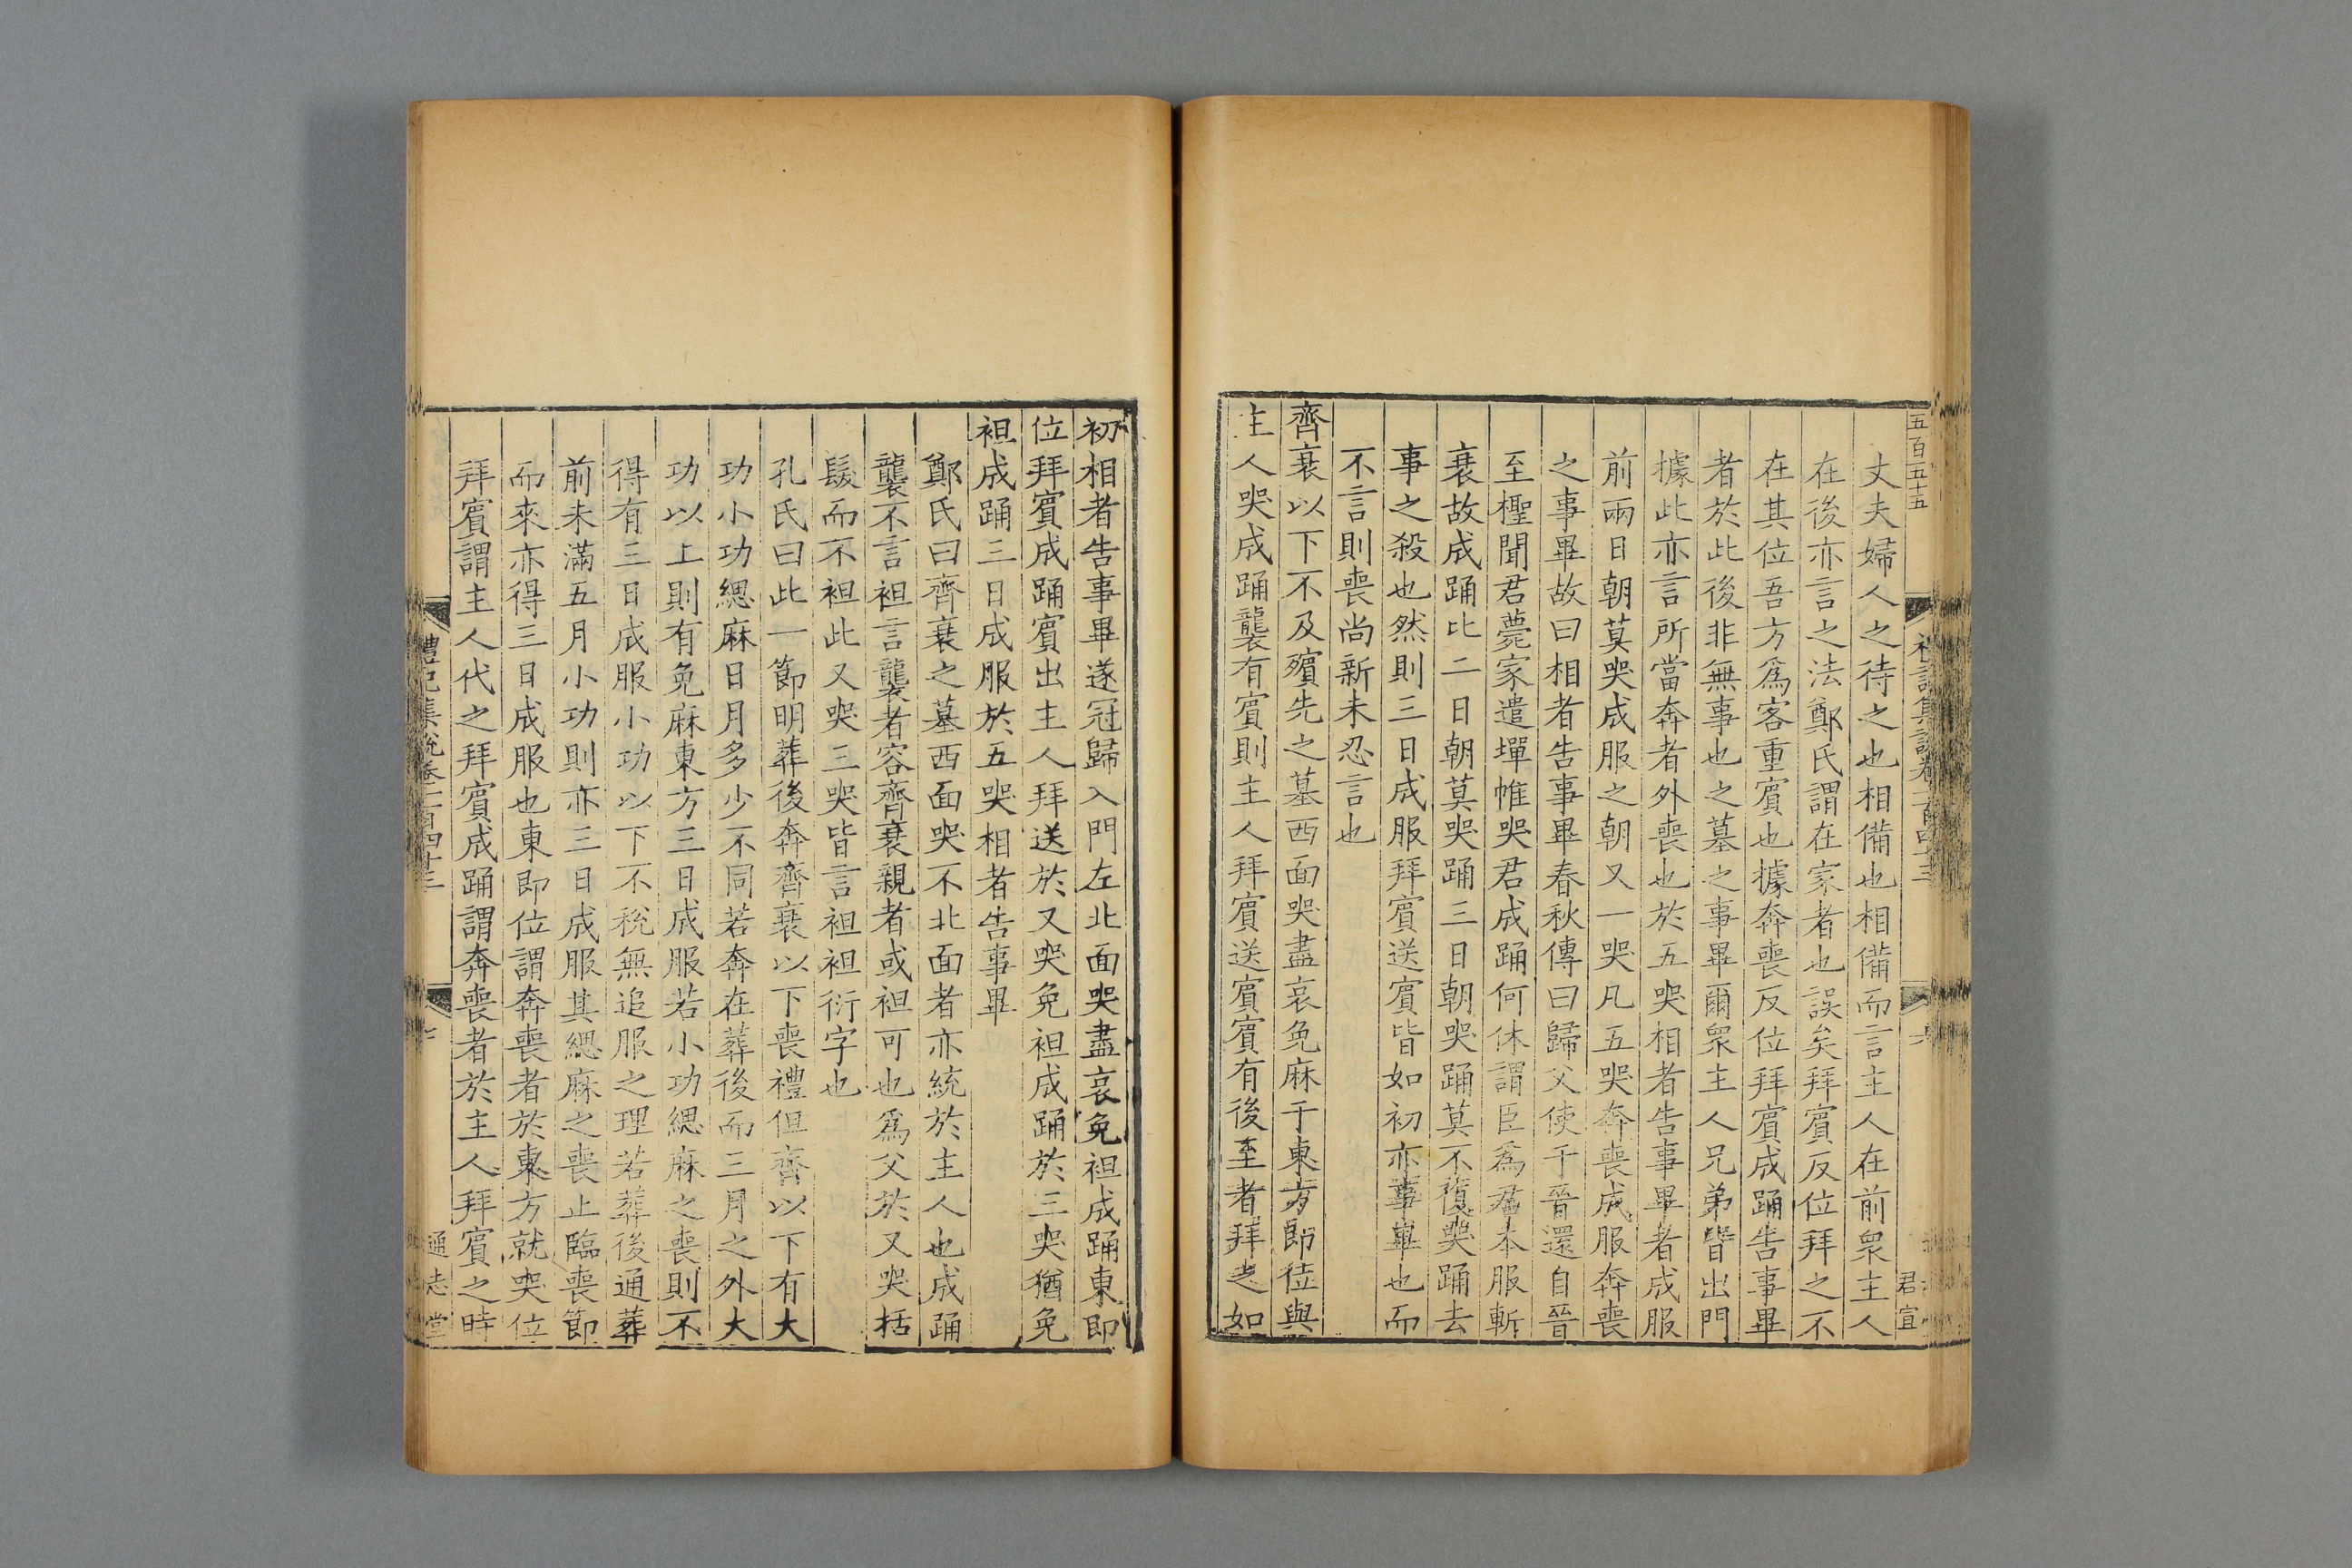 五百五十五
禮記集說卷一百四十三
六
君宣
丈夫婦人之待之也相備也相備而言主人在前衆主人
在後亦言之法鄭氏謂在家者也誤矣拜賓反位拜之不
在其位吾方爲客重賓也據奔喪反位拜賓成踊告事畢
者於此後非無事也之墓之事畢爾衆主人兄弟皆出門
據此亦言所當奔者外喪也於五哭相者告事畢者成服
前兩日朝莫哭成服之朝又一哭凡五哭奔喪成服奔喪
之事畢故曰相者告事畢春秋傳曰歸父使于晉還自晉
至檉聞君薨家遣墠帷哭君成踊何休謂臣爲君本服斬
衰故成踊比二日朝莫哭踊三日朝哭踊莫不復哭踊去
事之殺也然則三日成服拜賓送賓皆如初亦事畢也而
不言則喪尚新未忍言也
齊衰以下不及殯先之墓西面哭盡哀免麻于東方即位與
主人哭成踊襲有賓則主人拜賓送賓賓有後至者拜之如
初相者告事畢遂冠歸入門左北面哭盡哀免袒成踊東即
位拜賓成踊賓出主人拜送於又哭免袒成踊於三哭猶免
袒成踊三日成服於五哭相者告事畢
鄭氏曰齊衰之墓西面哭不北面者亦統於主人也成踊
襲不言袒言襲者容齊衰親者或袒可也爲父於又哭括
髮而不袒此又哭三哭皆言袒袒衍字也
孔氏曰此一節明葬後奔齊衰以下喪禮但齊以下有大
功小功緦麻日月多少不同若奔在葬後而三月之外大
功以上則有免麻東方三日成服若小功緦麻之喪則不
得有三日成服小功以下不稅無追服之理若葬後通葬
前未滿五月小功則亦三日成服其緦麻之喪止臨喪節
而來亦得三日成服也東即位謂奔喪者於東方就哭位
拜賓謂主人代之拜賓成踊謂奔喪者於主人拜賓之時
禮記集說卷一百四十三
七
通志堂